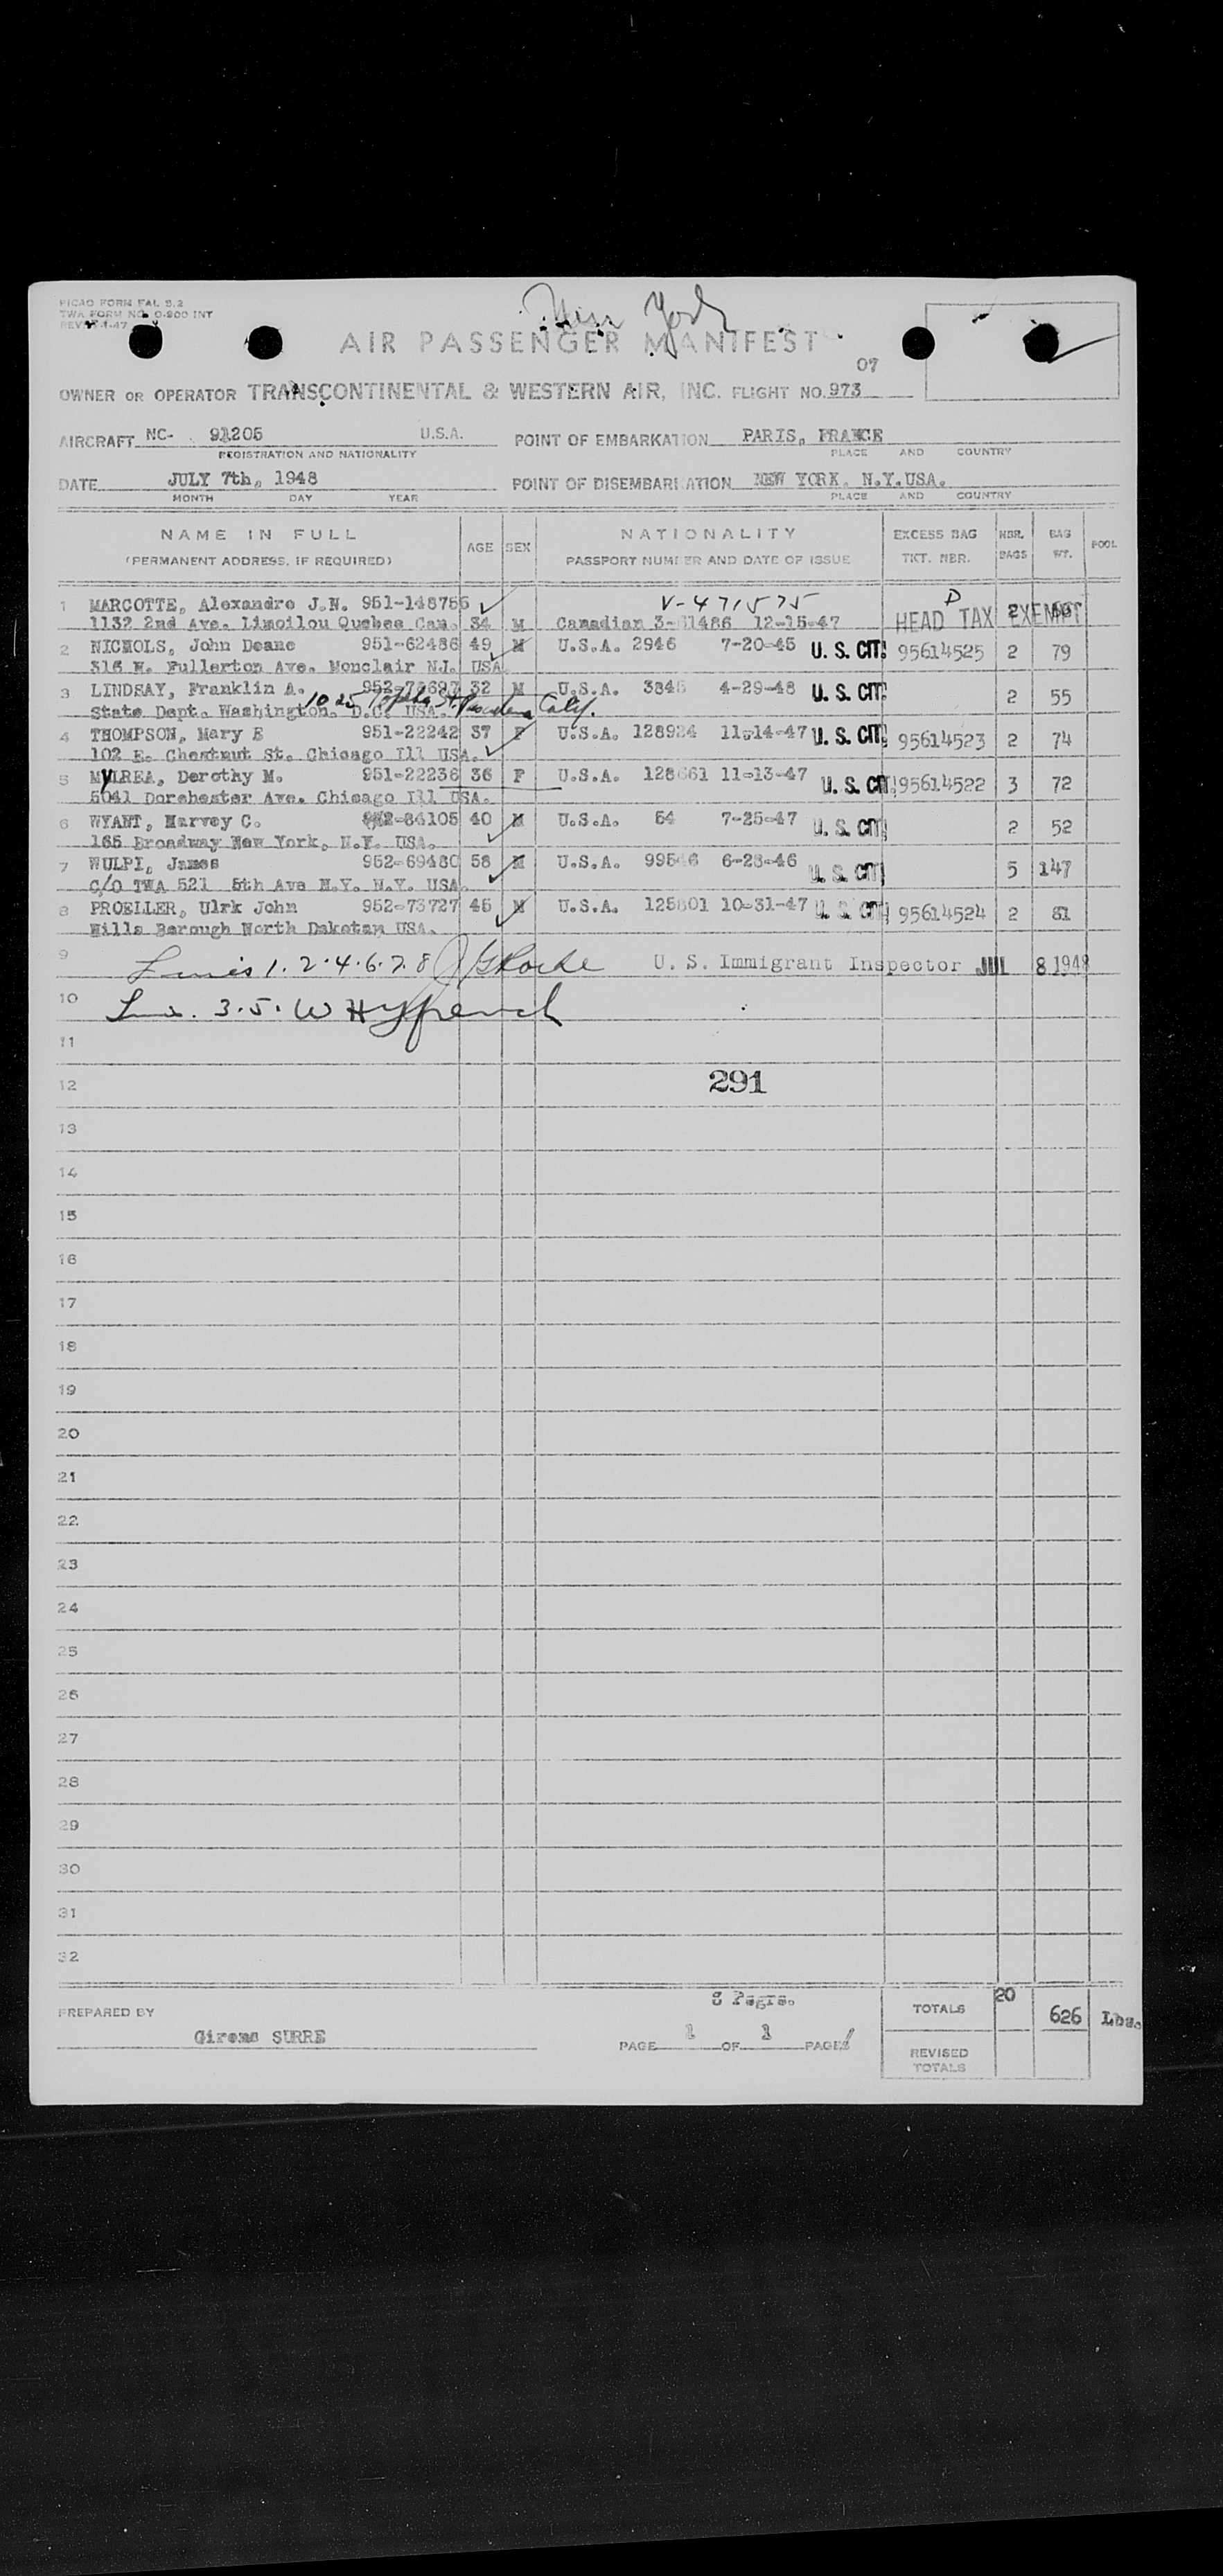 New York
PICAO FORM FAL S.2
TWA FORM NO. O-800 INT
AIR PASSENGER MANIFEST
07
OWNER OR OPERATOR TRANSCONTINENTAL & WESTERN AIR, INC. FLIGHT NO. 973
AIRCRAFT NC- 91205 U.S.A. POINT OF EMBARKATION PARIS, FRANCE
REGISTRATION AND NATIONALITY PLACE AND COUNTRY
DATE JULY 7th, 1948 POINT OF DISEMBARKATION NEW YORK. N.Y.USA.
MONTH DAY YEAR PLACE AND COUNTRY
NAME IN FULL AGE SEX NATIONALITY EXCESS BAG NBR. BAG POOL
(PERMANENT ADDRESS, IF REQUIRED) PASSPORT NUMBER AND DATE OF ISSUE TKT. NBR. BAGS WT.
V-471575 D
1 MARCOTTE, Alexandre J.N. 951-148756 HEAD TAX EXEMPT 2
1132 2nd Ave. Limoilou Quebec Can. 34 M Canadian 3-61486 12-15-47
2 NICHOLS, John Deane 951-62486 49 M U.S.A. 2946 7-20-45 U. S. CIT. 95614525 2 79
316 N. Fullerton Ave. Monclair NJ. USA.
3 LINDSAY, Franklin A. 32 M U.S.A. 3845 4-29-48 U. S. CIT. 2 55
State Dept. Washington. D.C. USA. 1025 St. Pasadena Calif.
4 THOMPSON, Mary E 951-22242 37 F U.S.A. 128924 11-14-47 U. S. CIT. 95614523 2 74
102 E. Chestnut St. Chicago Ill USA.
5 MYLREA, Dorothy M. 951-22236 36 F U.S.A. 128661 11-13-47 U. S. CIT. 95614522 3 72
5041 Dorchester Ave. Chicago Ill USA.
6 WYANT, Harvey C. 952-84105 40 M U.S.A. 54 7-25-47 U. S. CIT. 2 52
165 Broadway New York, N.Y. USA.
7 WULPI, James 952-69480 58 M U.S.A. 6-28-46 U. S. CIT 5 147
C/O TWA 521 5th Ave N.Y. N.Y. USA.
8 PROELLER, Ulrk John 952-73727 45 M U.S.A. 125801 10-31-47 U. S. CIT. 95614524 2 81
Hills Borough North Dakotam USA.
9 Lines 1. 2. 4. 6. 7. 8 U. S. Immigrant Inspector JUL 8 1948
10 3. 5.
11
12 291
13
14
15
16
17
18
19
20
21
22
23
24
25
26
27
28
29
30
31
32
8 Psgrs.
PREPARED BY TOTALS 20 626 Lbs.
SURRE
PAGE 1 OF 1 PAGE
REVISED
TOTALS